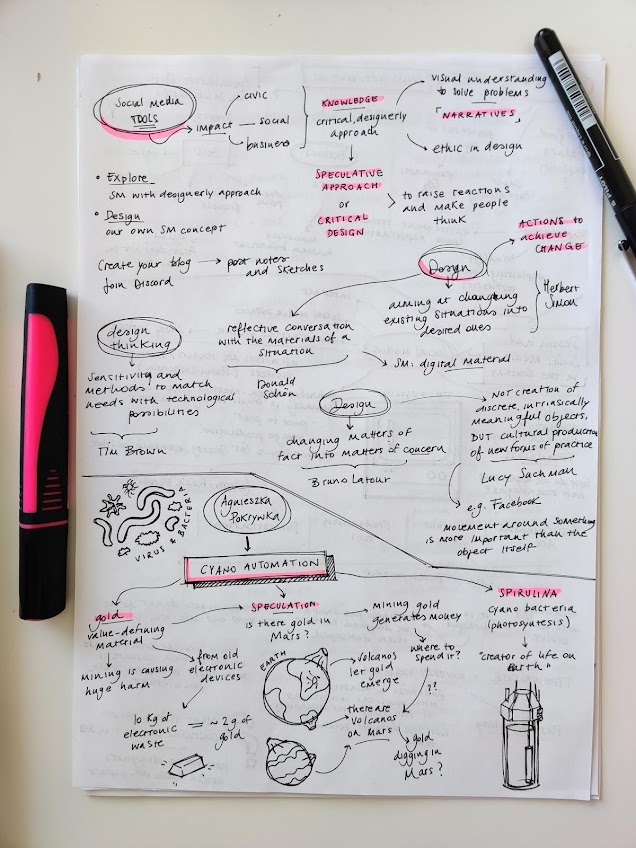 Social Media
TOOLS
impact
civic
social
business
KNOWLEDGE
critical, designerly
approach
visual understanding
to solve problems
"NARRATIVES"
ethic in design
SPECULATIVE
APPROACH
or
CRITICAL
DESIGN
to raise reactions
and make people
think
• Explore
SM with designerly approach
• Design
our own SM concept
Create your blog → post notes
and sketches
Join Discord
Design
ACTIONS to
achieve
CHANGE
aiming at changing
existing situations into
desired ones
Herbert
Simon
design
thinking
Sensitivity and
methods to match
needs with technological
possibilities
Tim Brown
reflective conversation
with the materials of a
situation
Donald
Schön
SM: digital material
Design
changing matters of
fact into matters of concern
Bruno Latour
NOT creation of
discrete, intrinsically
meaningful objects,
BUT cultural production
of new forms of practice
Lucy Suchman
e.g. Facebook
movement around something
is more important than the
object itself
VIRUS & BACTERIA
Agnieszka
Pokrywka
CYANO AUTOMATION
gold
value-defining
material
mining is causing
huge harm
from old
electronic
devices
10 Kg of
electronic
waste
= ~ 2g of
gold
SPECULATION
is there gold in
Mars?
mining gold
generates money
where to
spend it?
??
EARTH
volcanos
let gold
emerge
there are
volcanos
on Mars
gold
digging in
Mars?
SPIRULINA
cyano bacteria
(photosyntesis)
"creator of life on
Earth"